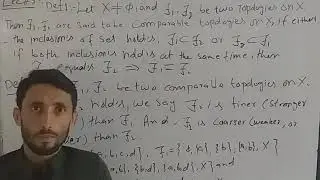 Def:- Let X ≠ φ, and J₁, J₂ be two Topologies on X.
Then J₁, J₂ are said to be Comparable topologies on X, if either
The inclusions of sets holds, J₁⊂J₂ or J₂⊂J₁
If both inclusions holds at the same time, then
equals J₂ ⇒ J₁ = J₂
J₂ be two comparable Topologies on X.
holds, we say J₂ is finer (Stronger
than J₁. And J₁ is coarser (weaker, or
than J₂
b, c, d}, J₁ = {φ, {a}, {b}, {a,b}, X}
{a,b}, {b,d}, {a,b,d}, X} and